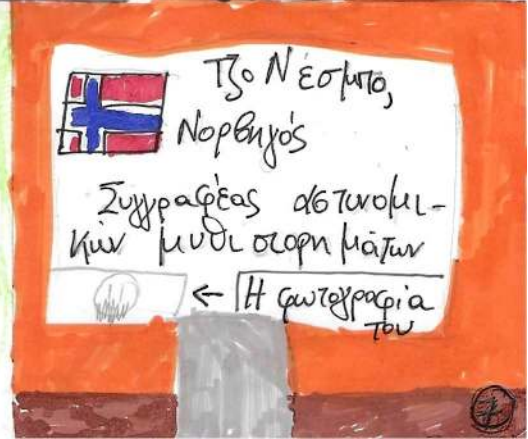 Τζο Νέσμπο,
Νορβηγός
Συγγραφέας αστυνομι-
κών μυθιστορημάτων
← Η φωτογραφία
του